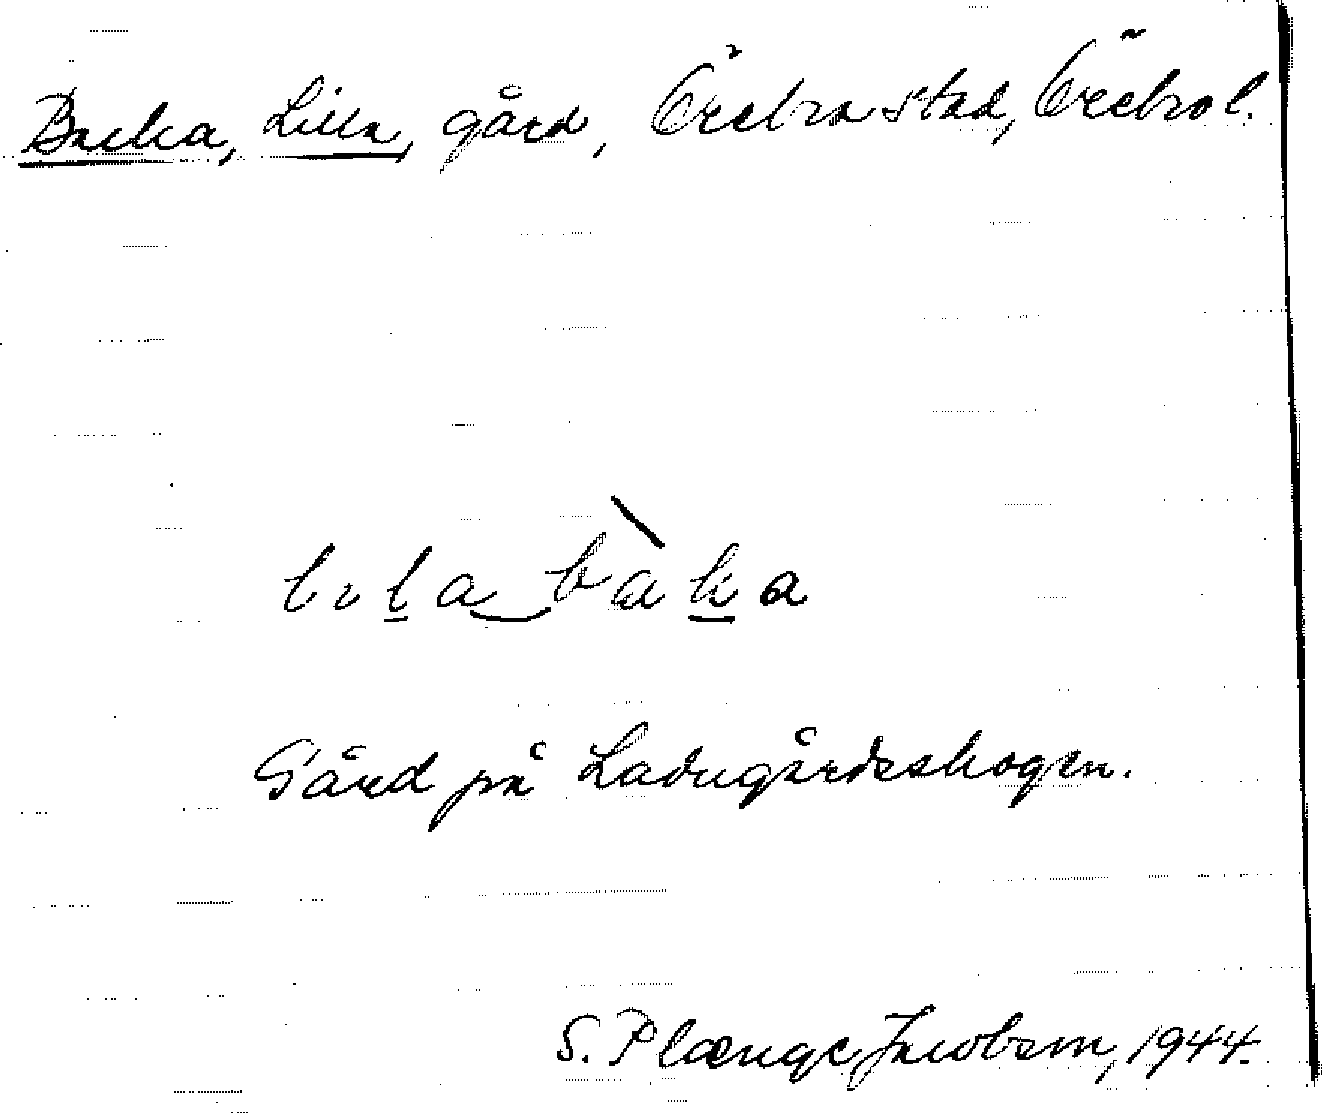 Backa, Lilla, gård, Örebro stad, Örebro l.
lɩla‿bàka
Gård på Ladugårdsskogen.
S. Plænge Jacobson, 1944.